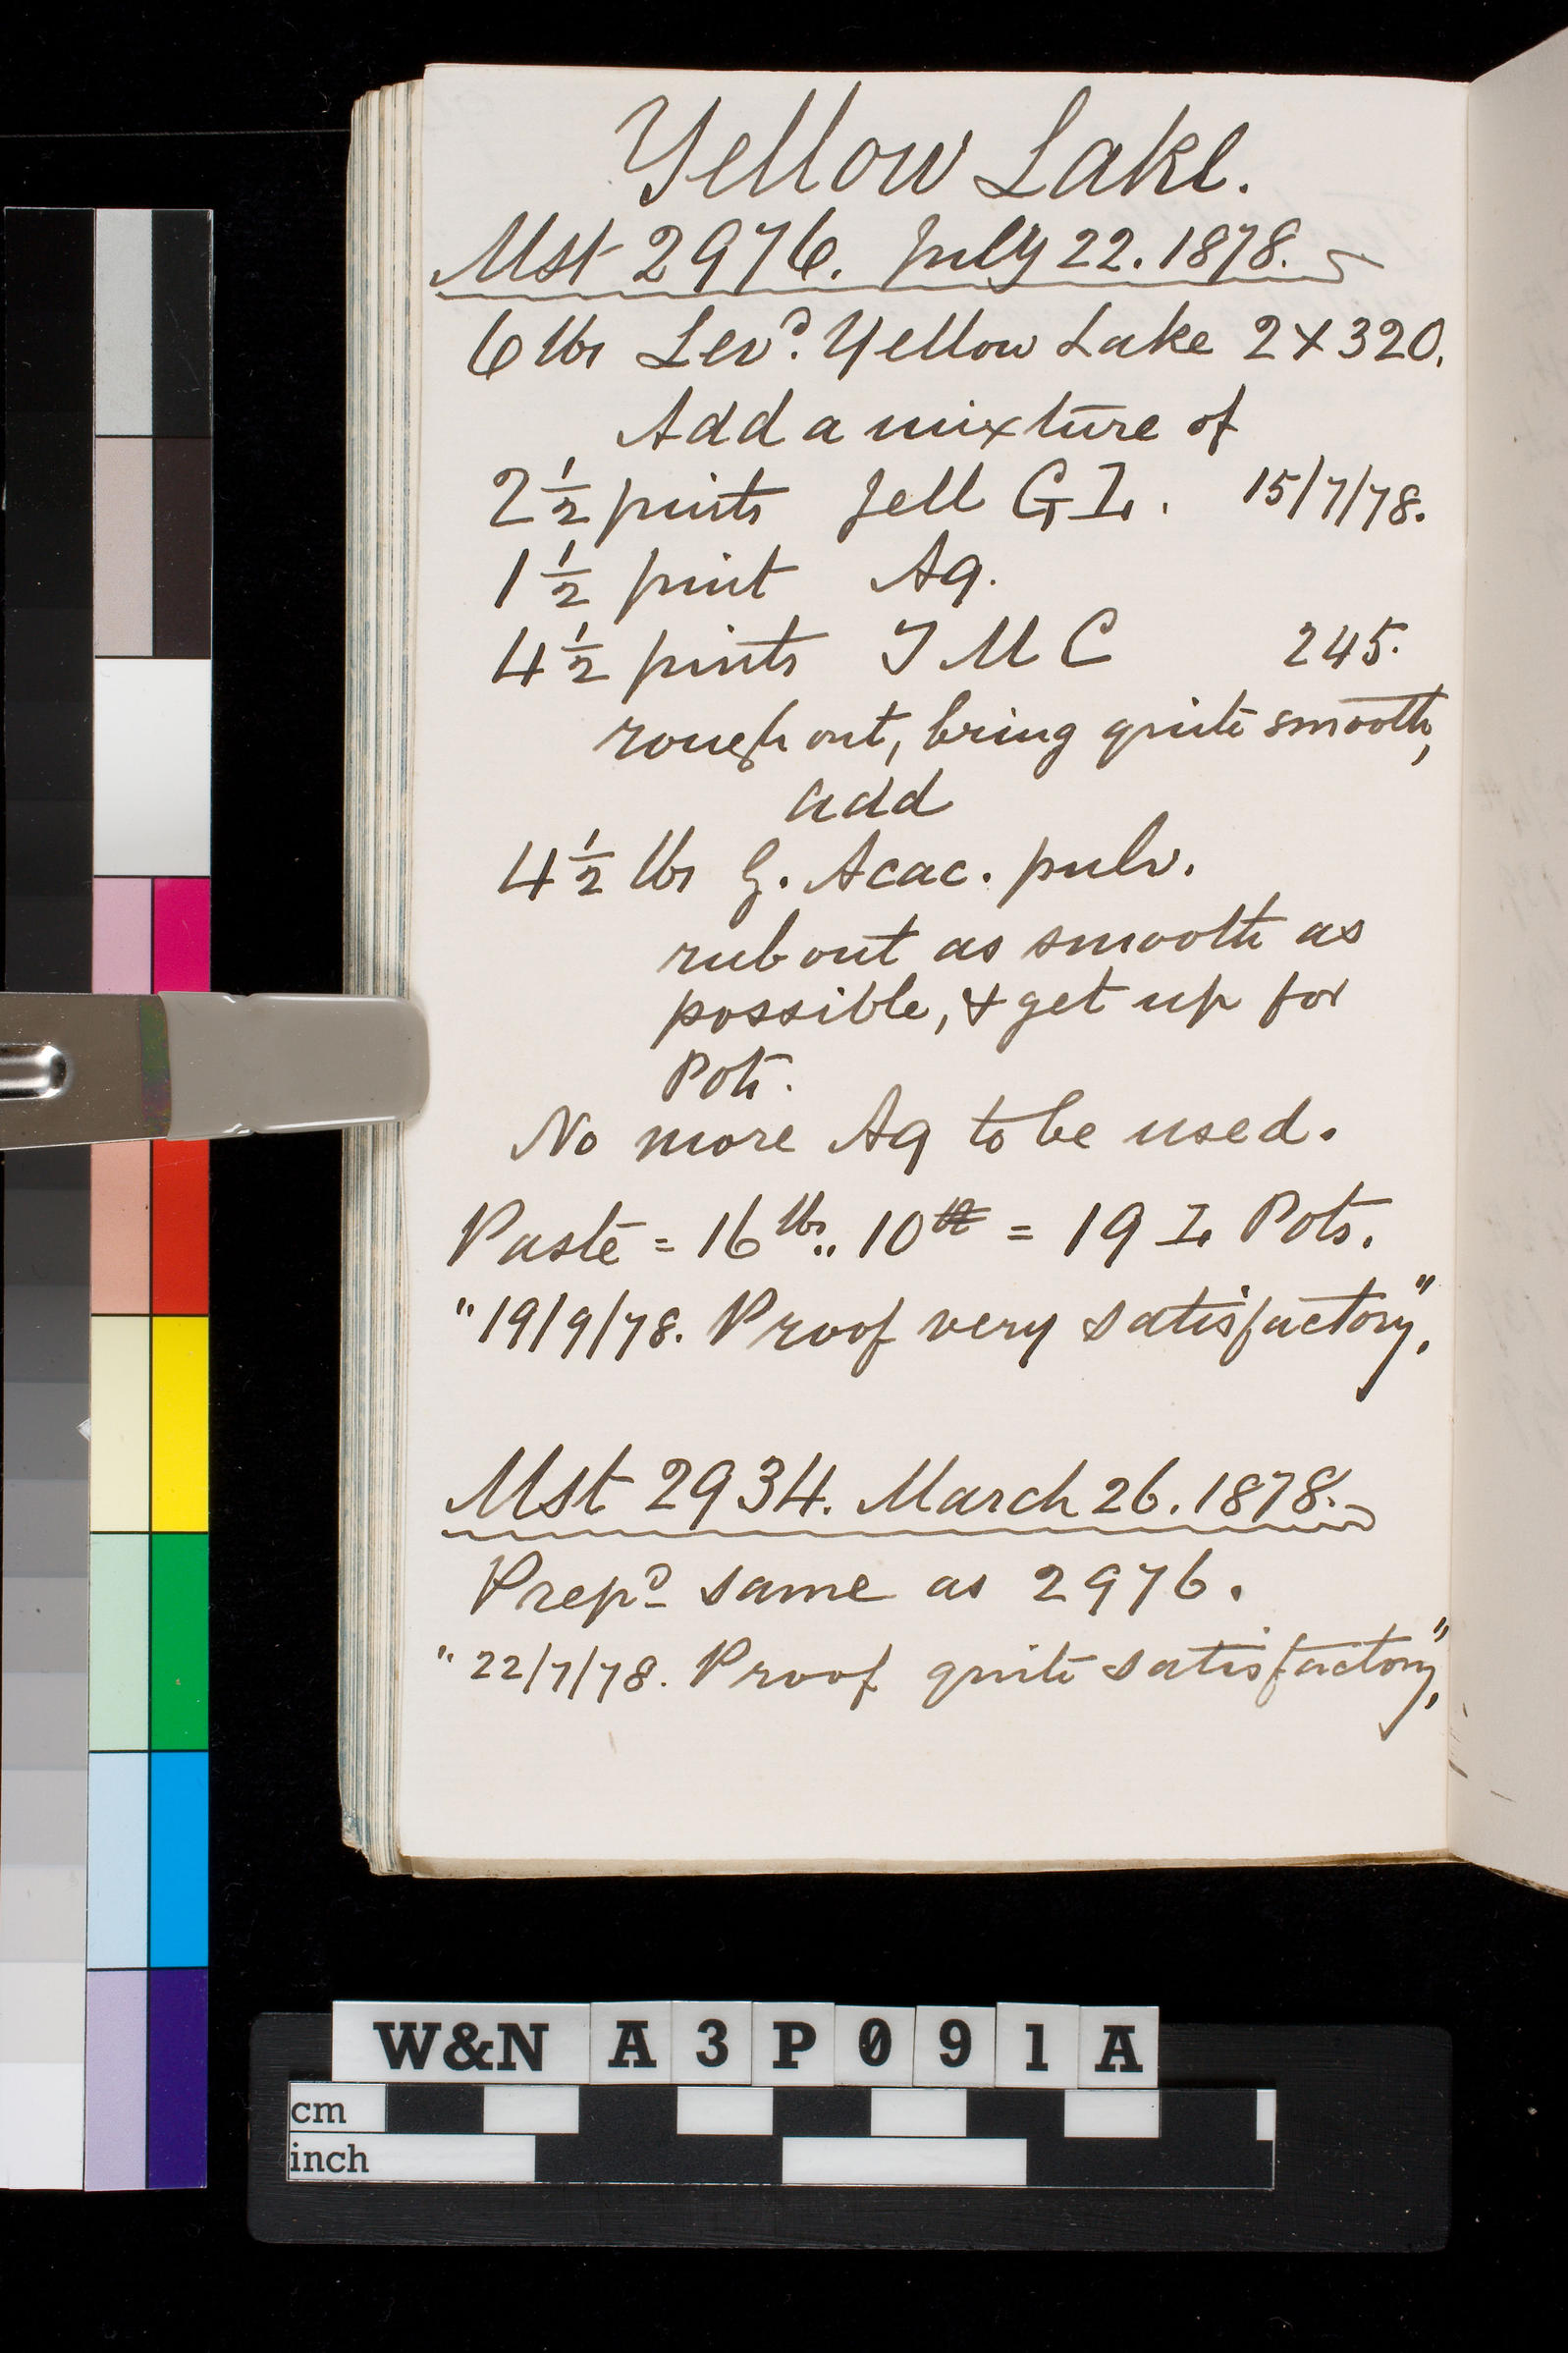 Yellow Lake.
Mst 2976. July 22. 1878.
6 lbs Levd. Yellow Lake 2 X 320.
Add a mixture of
2 1/2 pints Jell G I. 15/7/78.
1 1/2 pint Aq.
4 1/2 pints T M C 245.
rough out, bring quite smooth,
add
4 1/2 lbs G. Acac. pulv.
rub out as smooth as
possible, & get up for
Pots.
No more Aq to be used.
Paste = 16 lbs .. 10 = 19 I. Pots.
"19/9/78. Proof very satisfactory",
Mst 2934. March 26. 1878.
Prepd same as 2976.
"22/7/78. Proof quite satisfactory",
W&N A 3 P 0 9 1 A
cm
inch